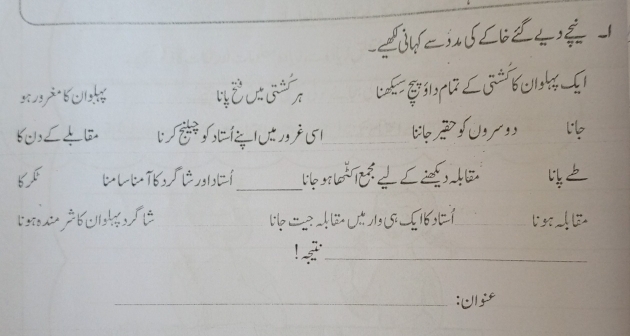 ا۔ نیچے دیے گئے خاکے کی مدد سے کہانی لکھیے۔
ایک پہلوان کا کُشتی کے تمام داؤ پیچ سیکھنا ہر کُشتی میں فتح پانا پہلوان کا مغرور ہو
جانا دوسروں کو حقیر جاننا اسی غرور میں اپنے اُستاد کو چیلنج کرنا مقابلے کے دن کا
طے پانا مقابلہ دیکھنے کے لیے مجمع اکٹھا ہو جانا ______ اُستاد اور شاگرد کا آمنا سامنا ٹکر کا
مقابلہ ہونا اُستاد کا ایک ہی وار میں مقابلہ جیت جانا شاگرد پہلوان کا شرمندہ ہونا
______ نتیجہ!
عنوان: ______